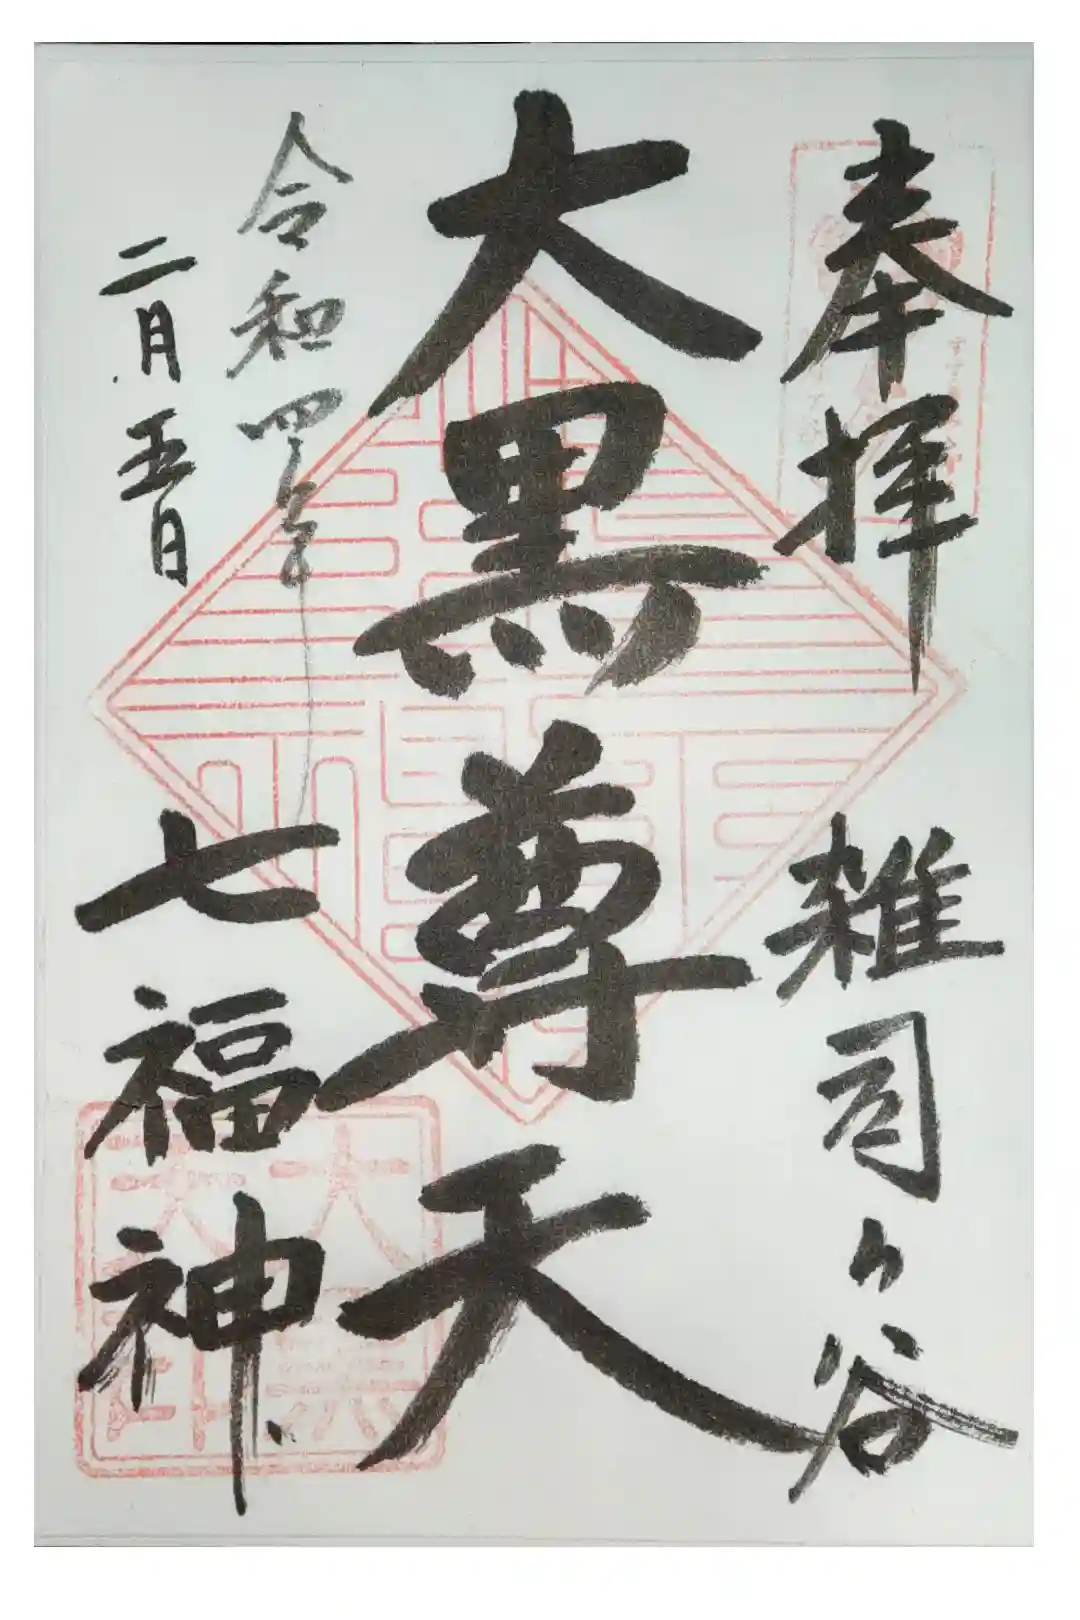 奉拝
雑司ヶ谷
大黒尊天
令和四年
二月五日
七福神